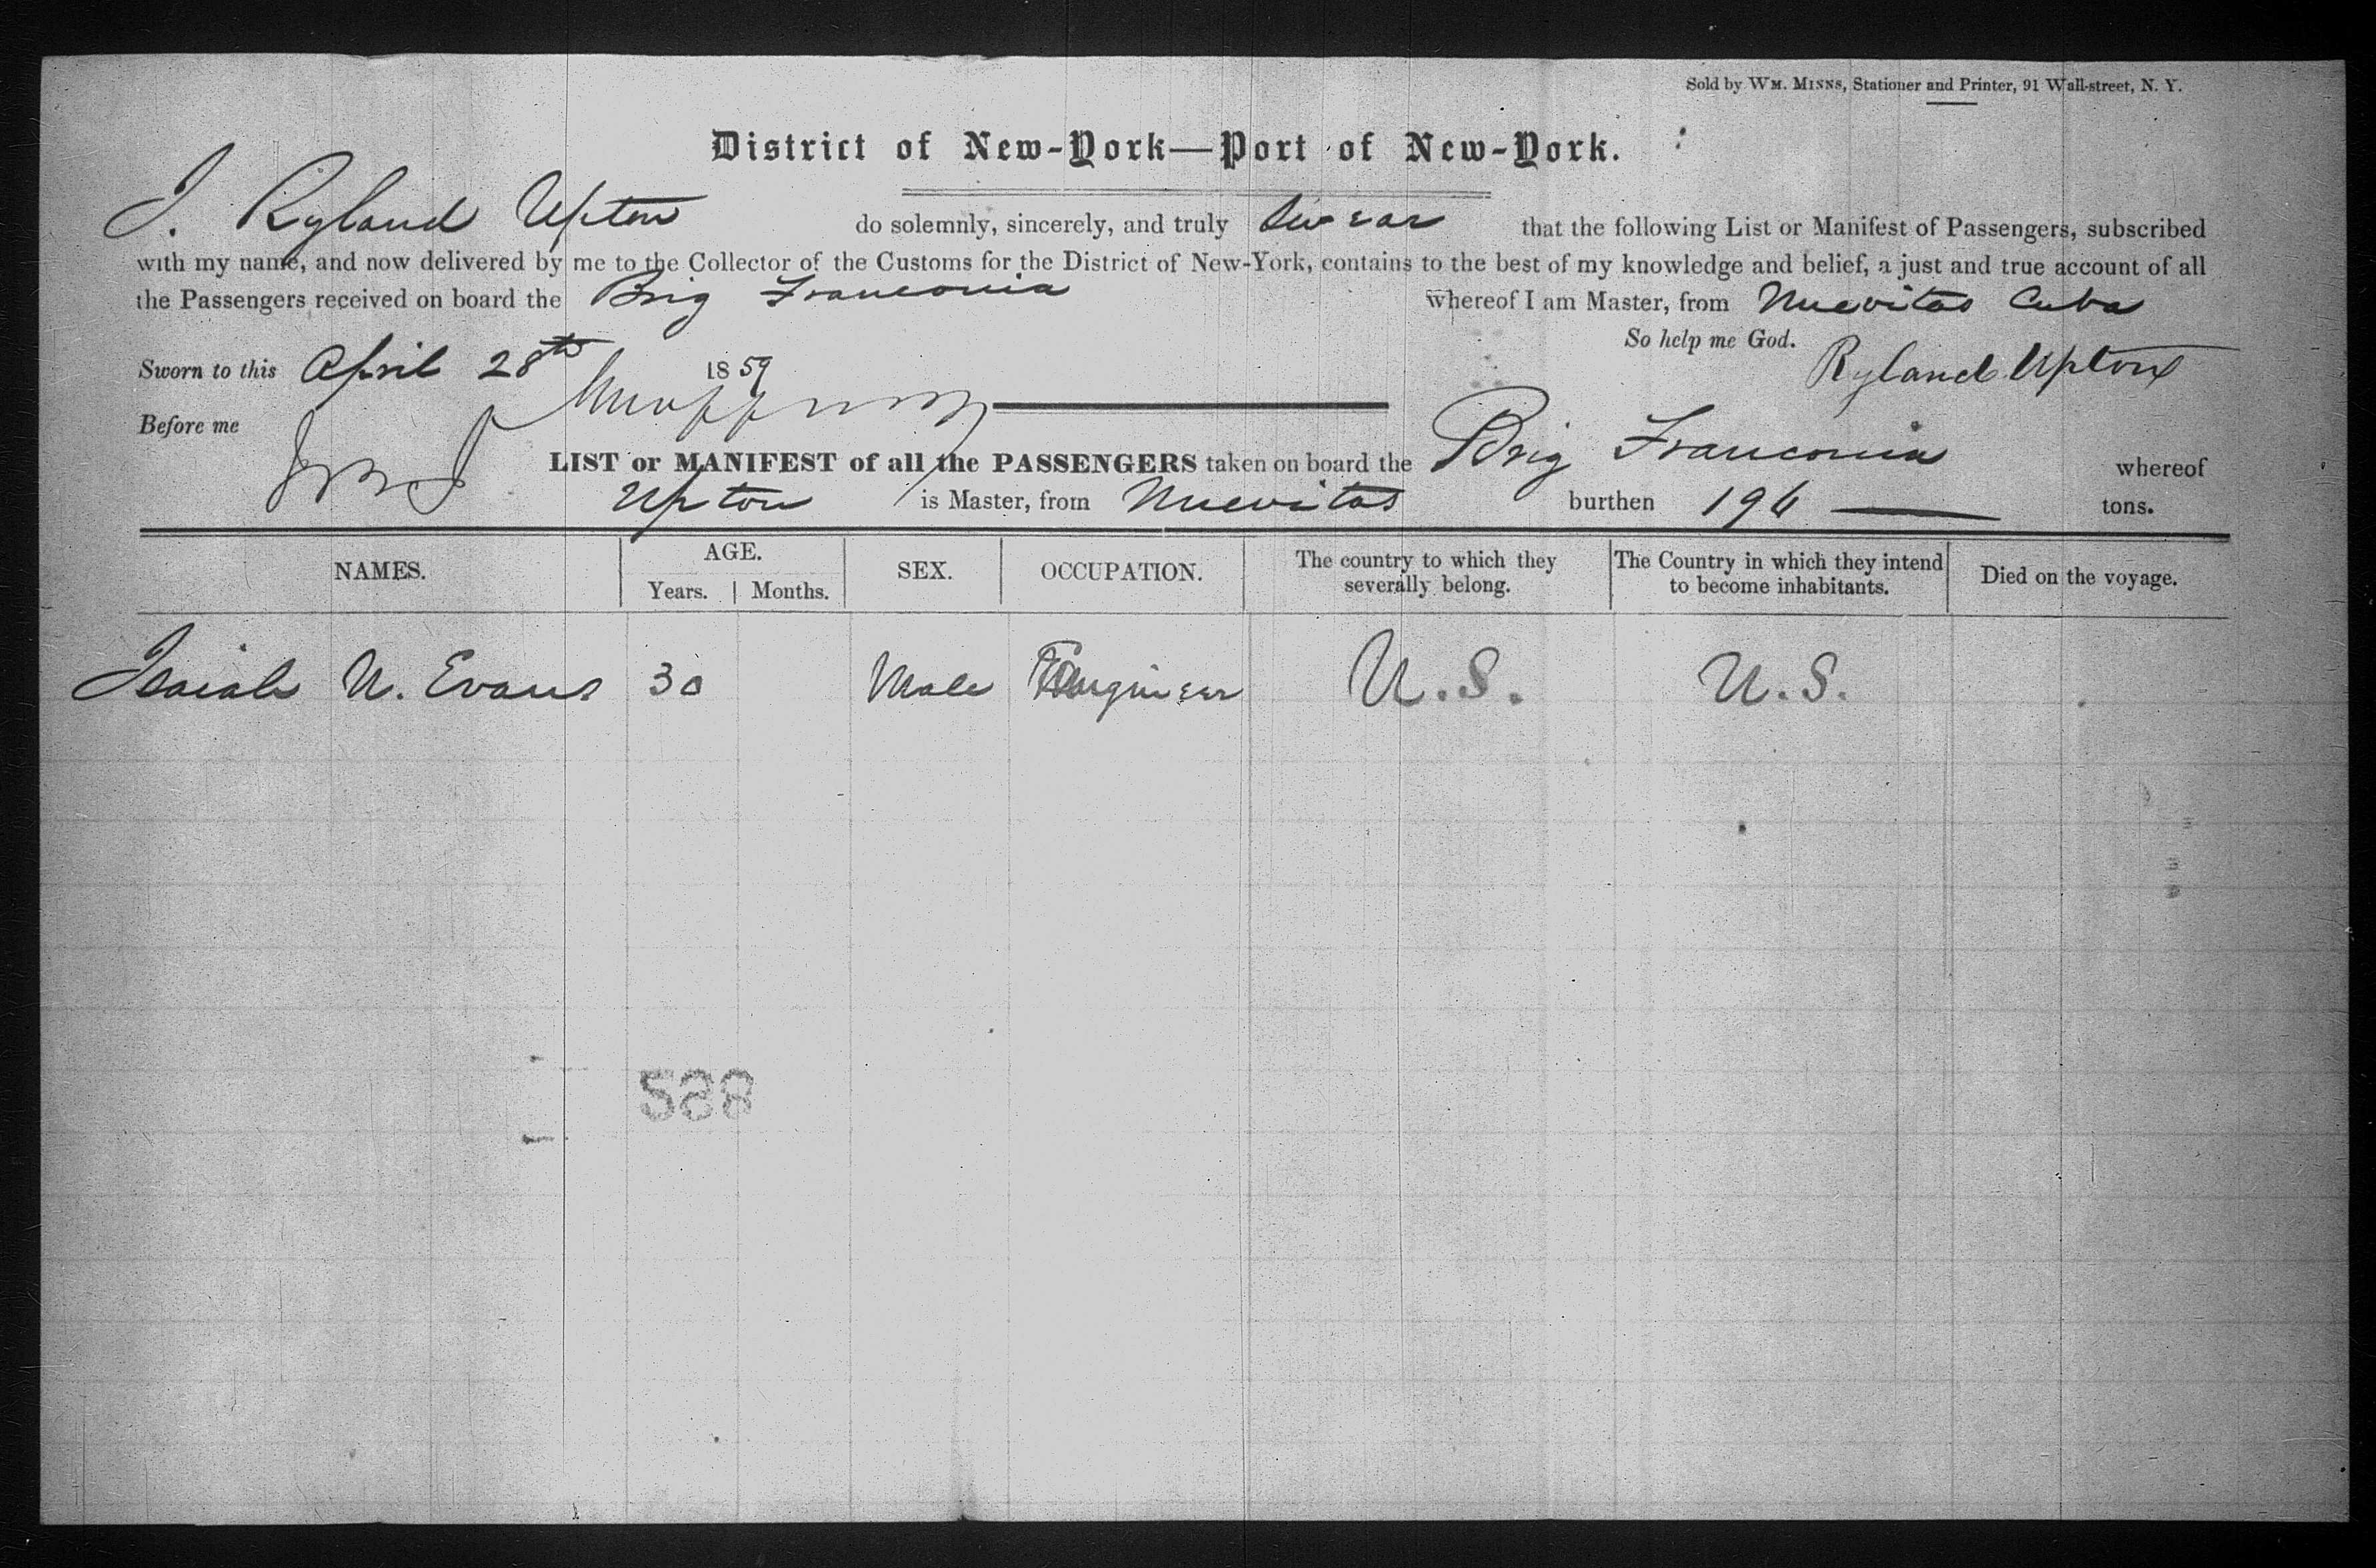 Sold by WM. MINNS, Stationer and Printer, 91 Wall-street, N. Y.
District of New-York—Port of New-York.
I. Ryland Upton do solemnly, sincerely, and truly swear that the following List or Manifest of Passengers, subscribed
with my name, and now delivered by me to the Collector of the Customs for the District of New-York, contains to the best of my knowledge and belief, a just and true account of all
the Passengers received on board the Brig Franconia whereof I am Master, from Nuevitas Cuba
So help me God.
Sworn to this April 28th 1859 Ryland Upton
Before me
LIST or MANIFEST of all the PASSENGERS taken on board the Brig Franconia whereof
Upton is Master, from Nuevitas burthen 196 tons.
NAMES. AGE. Years. Months. SEX. OCCUPATION. The country to which they severally belong. The Country in which they intend to become inhabitants. Died on the voyage.
Isaiah N. Evans 30 Male Engineer U.S. U.S.